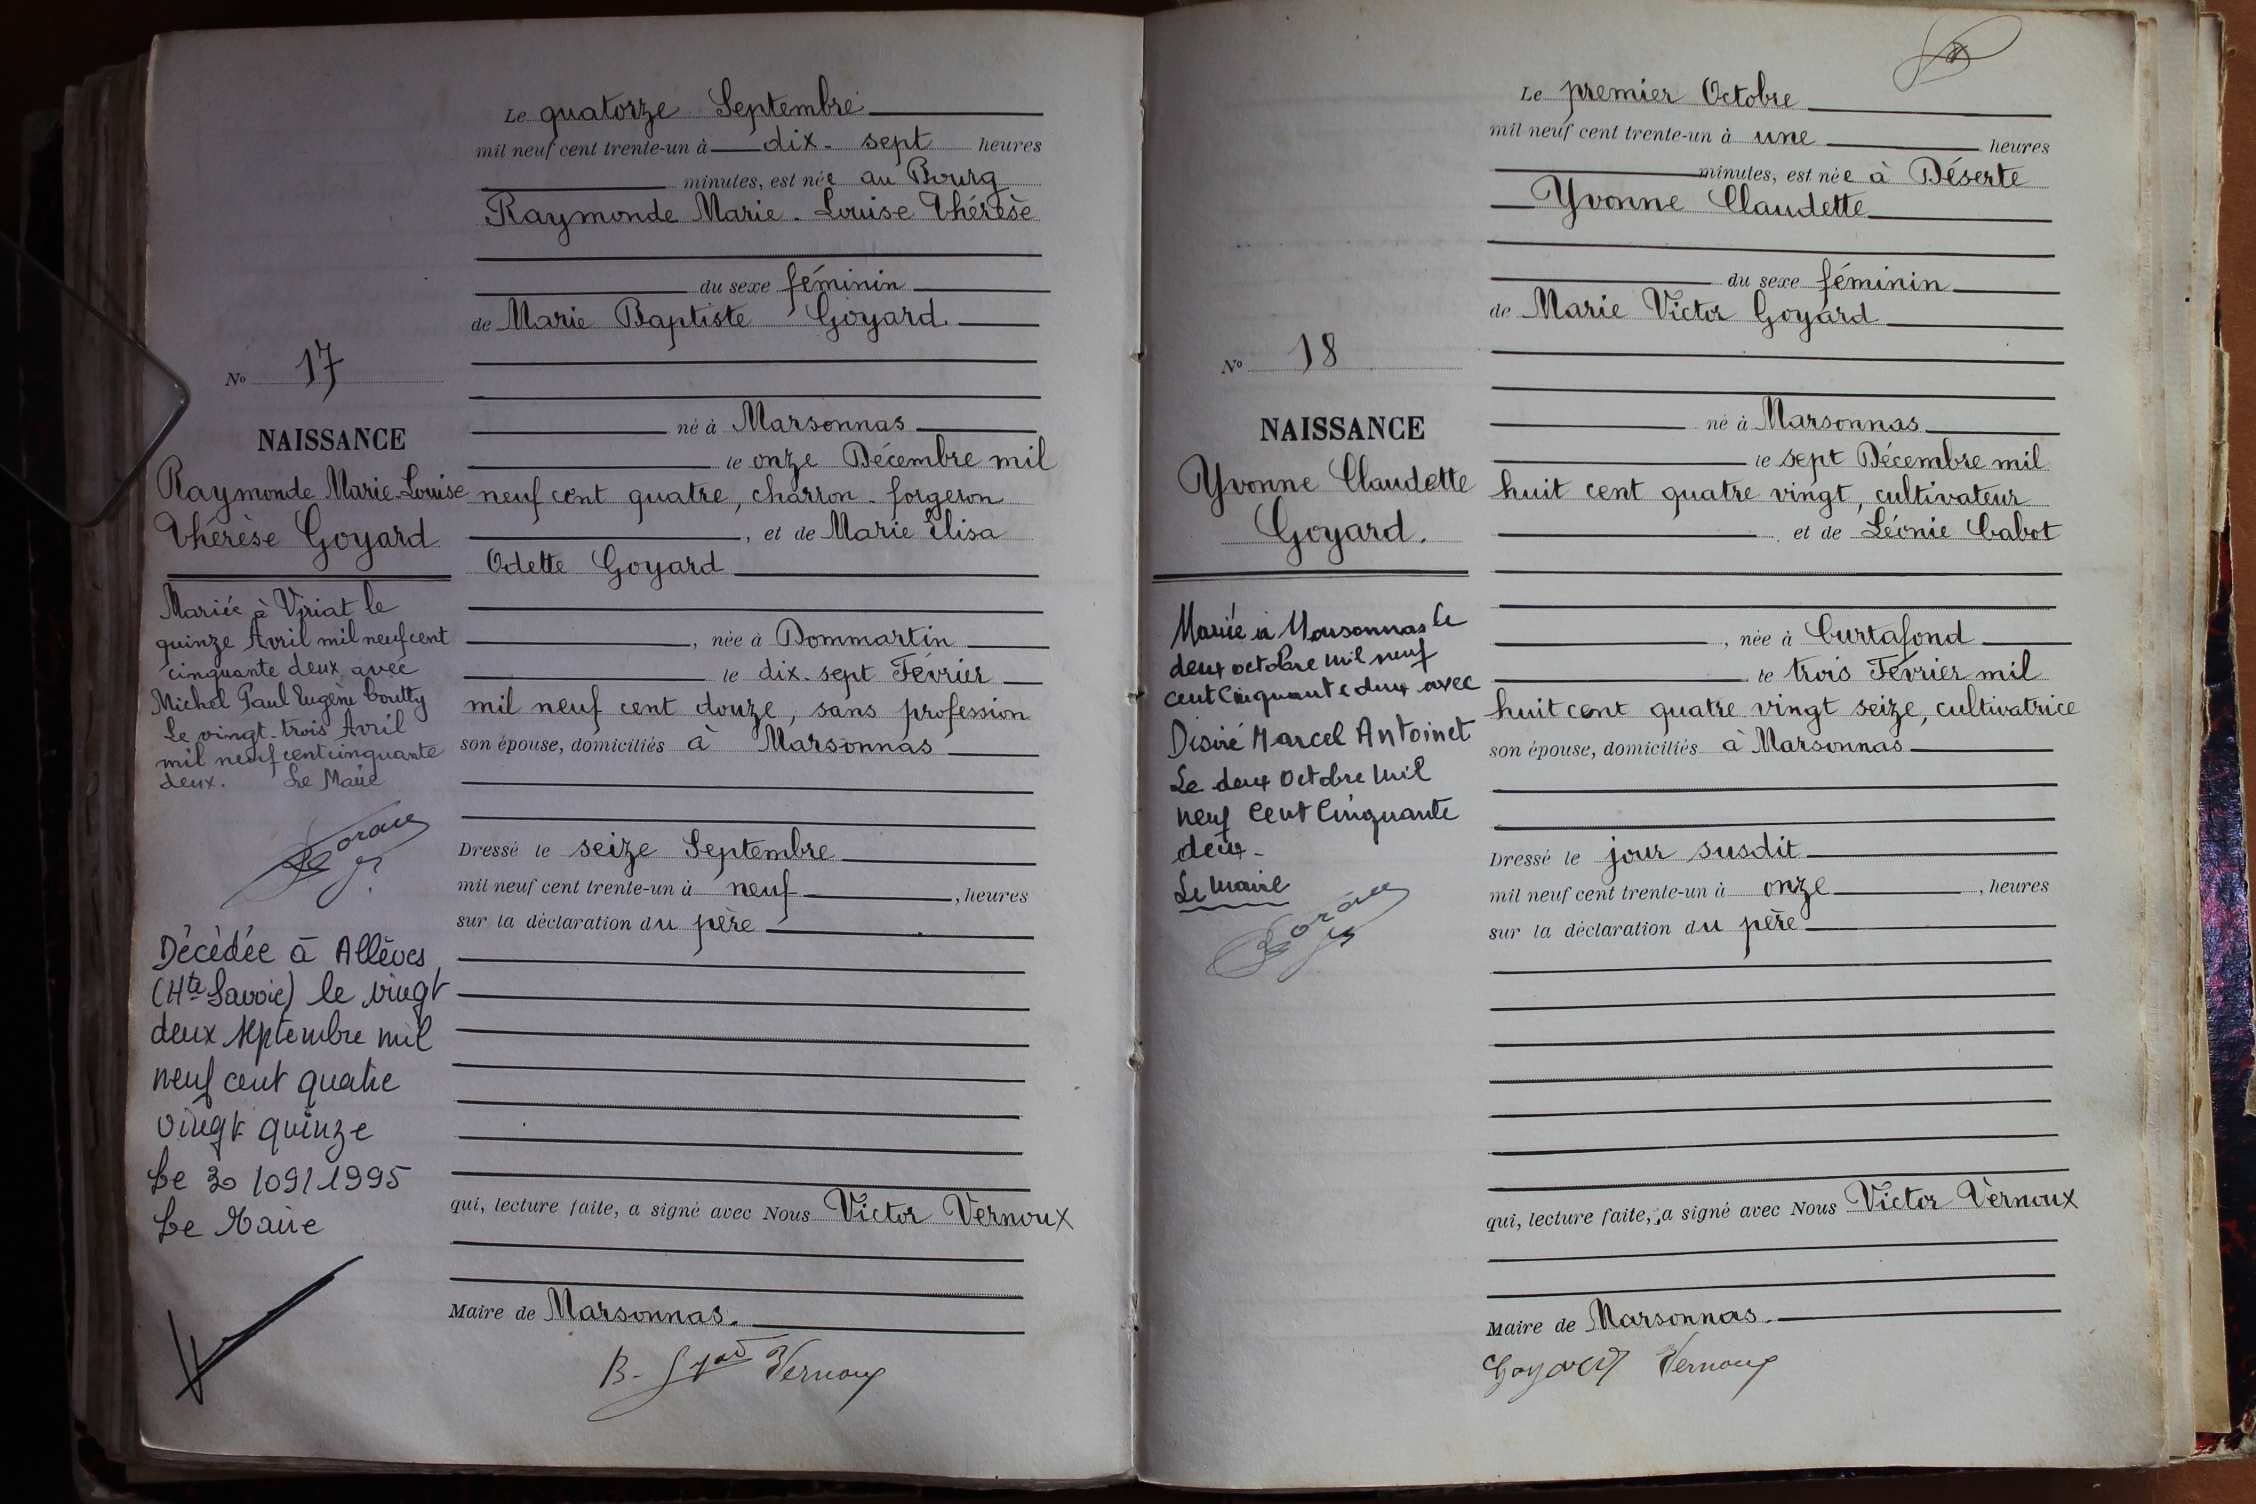 Le quatorze Septembre
mil neuf cent trente-un à dix-sept heures
minutes, est née au Bourg
Raymonde Marie-Louise Thérèse
du sexe féminin
de Marie Baptiste Goyard
né à Marsonnas
le onze Décembre mil
neuf cent quatre, charron-forgeron
, et de Marie Elisa
Odette Goyard
, née à Dommartin
le dix-sept Février
mil neuf cent douze, sans profession
son épouse, domiciliés à Marsonnas
Dressé le seize Septembre
mil neuf cent trente-un à neuf, heures
sur la déclaration du père
qui, lecture faite, a signé avec Nous Victor Vernoux
Maire de Marsonnas.
B. Vernoux
N° 17
NAISSANCE
Raymonde Marie-Louise
Thérèse Goyard
Mariée à Viriat le
quinze Avril mil neuf cent
cinquante deux avec
Michel Paul Eugène
Le vingt-trois Avril
mil neuf cent cinquante
deux. Le Maire
Décédée à Allèves
(Hte Savoie) le vingt
deux septembre mil
neuf cent quatre
vingt quinze
Le 30/09/1995
Le Maire
Le premier Octobre
mil neuf cent trente-un à une heures
minutes, est née à Déserte
Yvonne Claudette
du sexe féminin
de Marie Victor Goyard
né à Marsonnas
le sept Décembre mil
huit cent quatre vingt, cultivateur
et de Léonie Cabot
, née à Curtafond
le trois Février mil
huit cent quatre vingt seize, cultivatrice
son épouse, domiciliés à Marsonnas
Dressé le jour susdit
mil neuf cent trente-un à onze, heures
sur la déclaration du père
qui, lecture faite, a signé avec Nous Victor Vernoux
Maire de Marsonnas.
Goyard Vernoux
N° 18
NAISSANCE
Yvonne Claudette
Goyard.
Mariée à Marsonnas le
deux octobre mil neuf
cent cinquante deux avec
Désiré Marcel Antoinet
Le deux Octobre mil
neuf cent cinquante
deux-
Le Maire